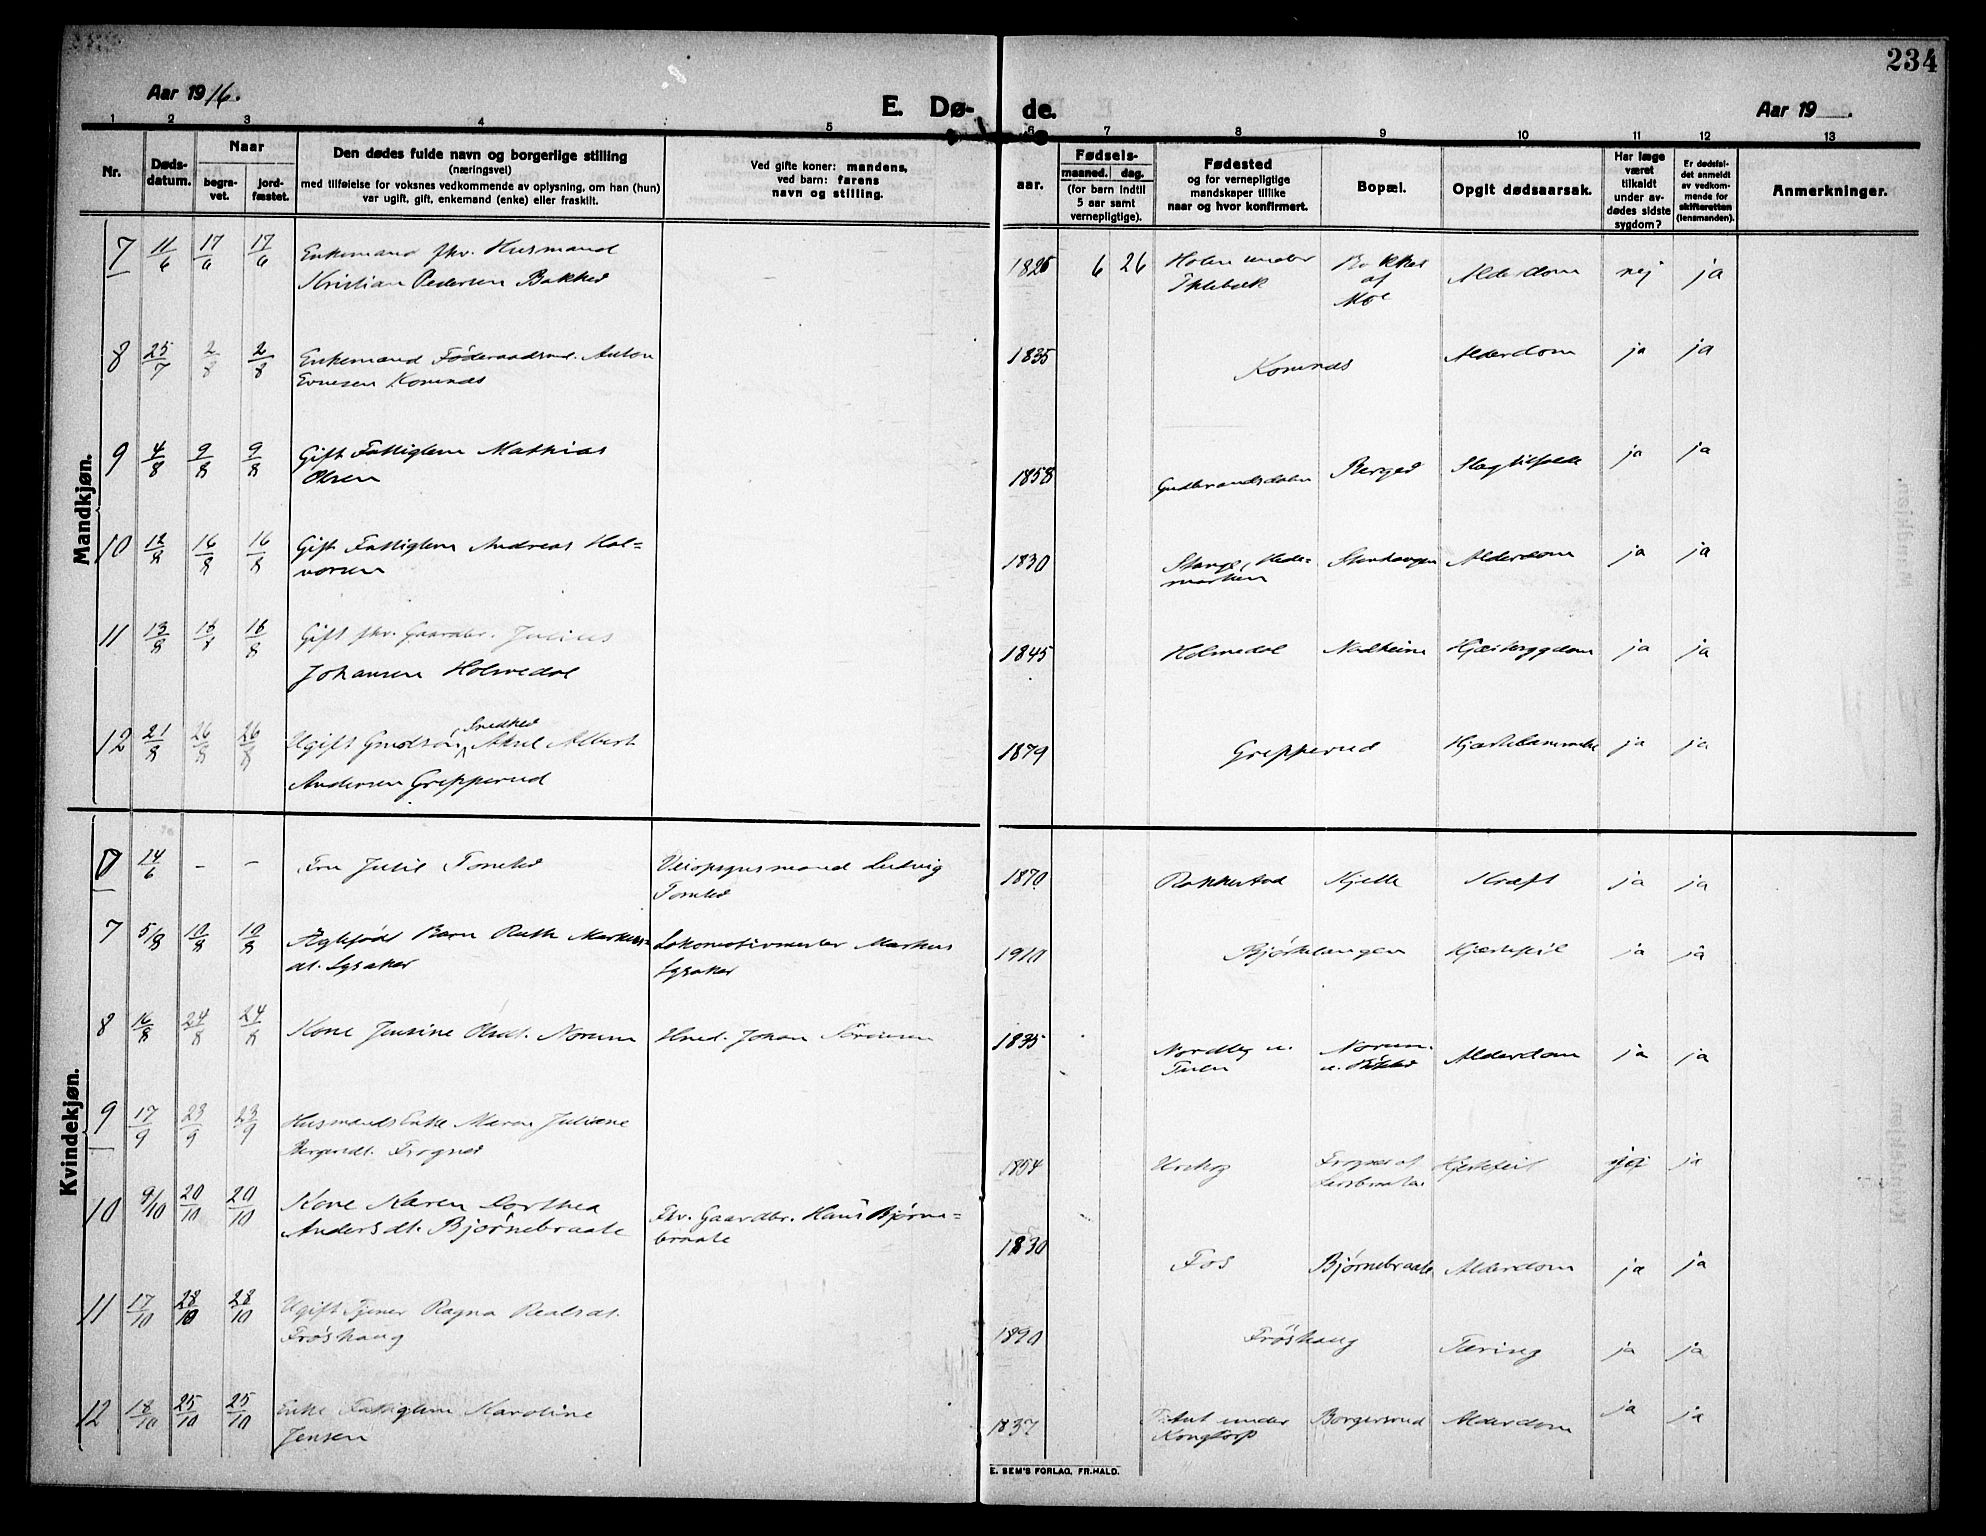 234
Aar 1916.
E. Dø-
de.
Aar 19 .
1 2 3 4 5 6 7 8 9 10 11 12 13
Nr.
Døds-
datum.
Naar
begra-
vet.
jord-
fæstet.
Den dødes fulde navn og borgerlige stilling
(næringsvei)
med tilføielse for voksnes vedkommende av oplysning, om han (hun)
var ugift, gift, enkemand (enke) eller fraskilt.
Ved gifte koner: mandens,
ved barn: farens
navn og stilling.
Fødsels-
aar.
maaned.
dag.
(for børn indtil
5 aar samt
vernepligtige).
Fødested
og for vernepligtige
mandskaper tillike
naar og hvor konfirmert.
Bopæl.
Opgit dødsaarsak.
Har læge
været
tilkaldt
under av-
dødes sidste
sygdom?
Er dødsfal-
det anmeldt
av vedkom-
mende for
skifteretten
(lensmanden).
Anmerkninger.
Mandkjøn.
7 11/6 17/6 17/6 Enkemand fhv. Husmand
Kristian Pedersen Bakked
1825 6 26 Holen under
Bakked
af
Moe
Alderdom nej ja
8 25/7 2/8 2/8 Enkemand Føderaadsmd. Anton
Evensen Komnæs
1835 Komnæs Alderdom ja ja
9 4/8 9/8 9/8 Gift Fattiglem Mathias
Olsen
1858 Gudbrandsdalen Berged Slagtilfælde ja ja
10 12/8 16/8 16/8 Gift Fattiglem Andreas Hal-
vorsen
1830 Stange, Hede-
marken
Stenhaugen Alderdom ja ja
11 13/8 18/8 18/8 Gift fhv. Gaardbr. Julius
Johansen Holmedal
1845 Holmedal ja ja
12 21/8 26/8 26/8 Ugift Gmdsøn, Snedker Aksel Albert
Andersen Grepperud
1879 Grepperud Hjertelammelse ja ja
Kvindekjøn.
14/6 - - Fru Julie Tomter
Veiopsynsmand Ludvig
Tomter
1870 Rakkestad Kjelle Kræft ja ja
7 5/8 10/8 10/8 Ægtefødt Barn Ruth Markus-
dt. Lysaker
Lokomotivmester Markus
Lysaker
1910 Bjørkelangen Hjertefeil ja ja
8 16/8 24/8 24/8 Kone Jensine Olsdt. Norum
Hmd. Johan Sørensen
1835 Nordby u.
Tuen
Norum
u.
Alderdom ja ja
9 17/9 23/9 23/9 Husmands Enke Maren Juliane
Bergersdt. Frogner
1854 Urskog Frogner af
Hjertefeil ja
10 9/10 20/10 20/10 Kone Karen Dorthea
Andersdt. Bjørnebraate
Fhv. Gaardbr. Hans Bjørne-
braate
1830 Fos Bjørnebraate Alderdom ja ja
11 17/10 28/10 28/10 Ugift Tjener Ragna Realsdt.
Frøshaug
1890 Frøshaug Tæring ja ja
12 18/10 25/10 25/10 Enke Fattiglem Karoline
Jensen
1837 under
Kongtorp
Borgersrud Alderdom ja ja
E. SEM'S FORLAG, FR.HALD.